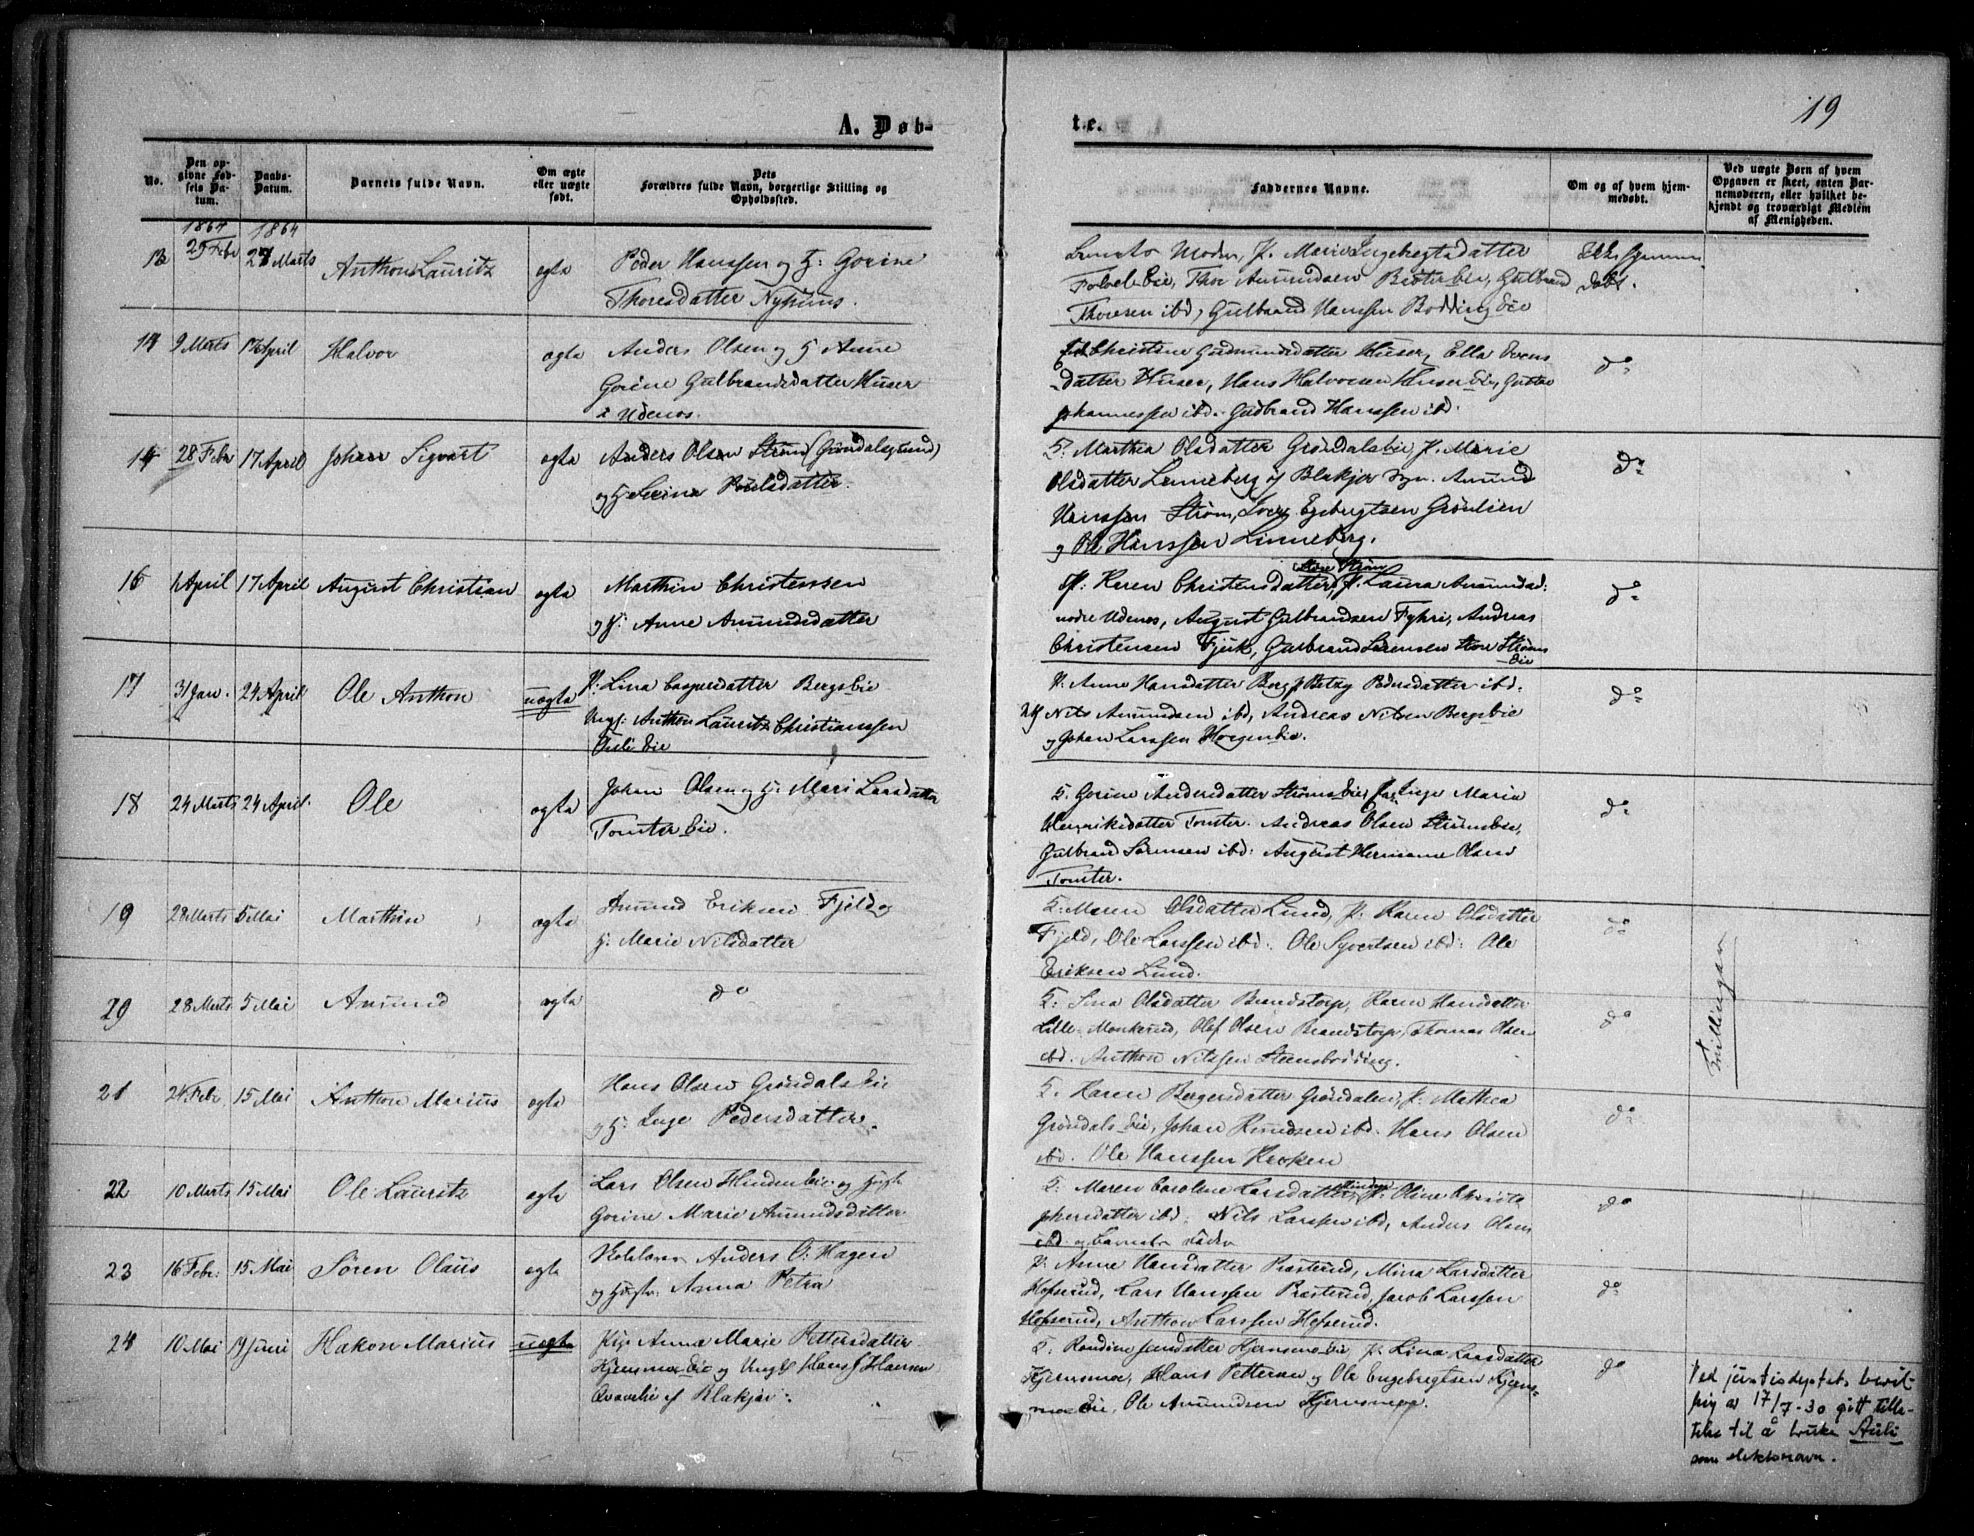 19
A. Døb-
te.
No.
Den op-
givne Fød-
sels Da-
tum.
Daabs-
Datum.
Barnets fulde Navn.
Om ægte
eller uægte
født.
Dets
Forældres fulde Navn, borgerlige Stilling og
Opholdssted.
Faddernes Navne.
Om og af hvem hjem-
medøbt.
Ved uægte Børn af hvem
Opgaven er skeet, enten Bar-
nemoderen, eller hvilket be-
kjendt og troværdigt Medlem
af Menigheden.
1864 1864
13 25 Febr 27 Marts Anthon Lauritz ægte Peder Hanssen og H: Gorine
Thoresdatter Nyhuus.
Barnets Moder, P. Marie Ingebregtsdatter
Eie, Thor Amundsen Eie, Gulbrand
Thoresen ibd, Gulbrand Hanssen Bødding Eie
Ikke hjemme
døbt.
14 9 Marts 17 April Halvor ægte Anders Olsen og H Anne
Gorine Gulbrandsdatter Huser
i Udenes.
Christine Gudmundsdatter Huser, Ella Evens
datter Huser, Hans Halvorsen Huser Eie, Gustav
Johannessen ibd. Gulbrand Hanssen ibd.
do
15 28 Febr 17 April Johan Sigvart ægte Anders Olsen Strøm (Grøndalsgrund)
og H Serine Poulsdatter.
G: Marthea Olsdatter Grøndalseie, P. Marie
Olsdatter Linneberg af Blakjer Amund
Hanssen Strøm, Iver Egebregtsen Grønlien
og Ole Hanssen Linneberg.
do
16 1 April 17 April August Christian ægte Marthin Christenssen
og H: Anne Amundsdatter
P: Karen Christensdatter Store Strøm, P. Laura Amundsd:
nodre Udenes, August Gulbrandsen Fyhri, Andreas
Christensen Fjuk, Gulbrand Sørensen Store Strøms
Eie
do
17 31 Jan. 24 April Ole Anthon uægte P: Lina Caspersdatter Bergseie
Ungk: Anthon Lauritz Christianssen
Auli Eie
P. Anne Hansdatter Berg, P Betzy Pedersdatter ibd.
Nils Amundsen ibd, Andreas Nilsen Bergseie
og Johan Larssen Horgen Eie.
do
18 24 Marts 24 April. Ole ægte Johan Olsen og H: Mari Larsdatter
Tomter Eie.
G. Gorine Andersdatter Strøms Eie, Inge Maria
Henriksdatter Tomter. Andreas Olsen Strømseie,
Gulbrand Sørensen ibd: August Hermann Olsen
Tomter.
do
19 28 Marts 5 Mai Marthin ægte Amund Eriksen Fjeld og
H: Marie Nilsdatter
G: Maren Olsdatter Lund, P: Karen Olsdatter
Fjeld, Ole Larssen ibd: Ole Syvertsen ibd: Ole
Eriksen Lund.
do
Tvillinger
20 28 Marts 5 Mai Amund ægte do
G: Lina Olsdatter Brandstorp, Karen Hansdatter
Lille-Monkerud, Olof Olsen Brandstorp, Thomas Olsen
ibd. Anthon Nilssen Steensbødding.
do
21 24 Febr. 15 Mai Anthon Marius ægte Hans Olsen Grøndals Eie
og H: Inge Pedersdatter.
G. Karen Bergersdatter Grøndalen, P: Mathea
Grøndals Eie, Johan Knudsen ibd. Hans Olsen
ibd. Ole Hanssen Kroken
do
22 10 Marts 15 Mai Ole Lauritz ægte Lars Olsen Hinden Eie og Hust
Gorine Marie Amundsdatter
G. Maren Caroline Larsdatter Hinden, P: Oline Christo
phersdatter ibd. Nils Larssen ibd, Anders Olsen
ibd. og Barnets Fader
do
23 16 Febr. 15 Mai Søren Olaus ægte Skolelærer Anders O: Hagen
og Hustr. Anna Petra
P: Anne Hansdatter Præsterud, Mina Larsdatter
Hofserud, Lars Hansen Præsterud, Jacob Larssen
Hofserud, Anthon Larssen Hofserud.
do
24 10 Mai 19 Juni Hakon Marius uægte Pige Anna Marie Pettersdatter
Hjernsmoe Eie og Ungk Hans H Hansen
af Blakjær.
G. Randine Jensdatter Hjernsmo Eie, P: Lina Larsdatter
Hjernsmoe, Hans Pettersen og Ole Engebregtsen Hjerns-
moe Eie, Ole Amundsen Hjernsmoe.
do
Ved justisdeptets bevil-
ling av 17/7-30 gitt tilla-
telse til å bruke Auli
som slektsnavn.